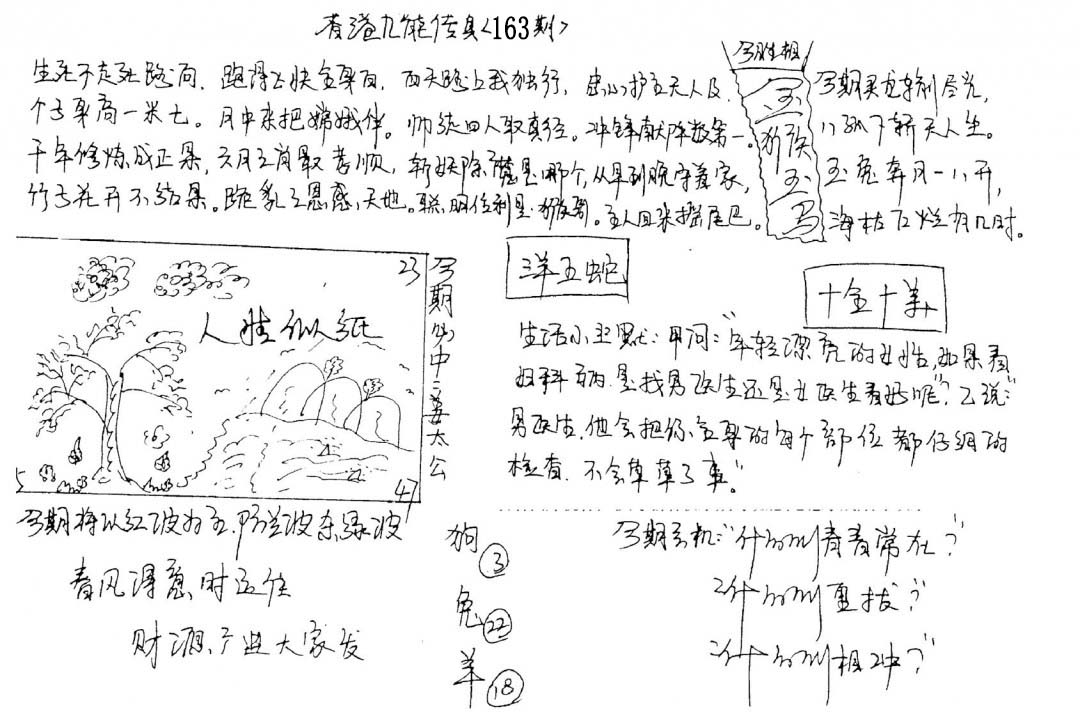 香港九龍传真<163期>
生死不走死路向．跑得上快全身白．西天路上我独行．忠心护主无人及．
个子身高一米七。月中来把嫦娥伴。师徒四人取真经。冲锋献阵数第一。
千年修炼成正果，六月三肖最苦顺，斩妖除魔是哪个，从早到晚守着家，
竹子花开不结果。跪乳之恩感天地。聪明伶利是猴哥。主人回来摇尾巴。
今胜相
玉
猴
玉
马
今期
玉兔奔月一八开，
海枯石烂有几时。
23
人胜似纸
5
47
今期必中
姜太公
羊五蛇
十全十美
生活小幽默：甲问：“年轻漂亮的女性，如果看
妇科病．是找男医生还是女医生看好呢”？乙说：“
男医生．他会把你全身的每个部位都仔细的
检查．不会草草了事。”
今期将以红波为主．防兰波杀绿波
春风得意时运佳
财源广进大家发
狗③
兔㉒
羊⑱
今期玄机：“什么时青春常在？”
什么时重拔？”
什么时相冲？”